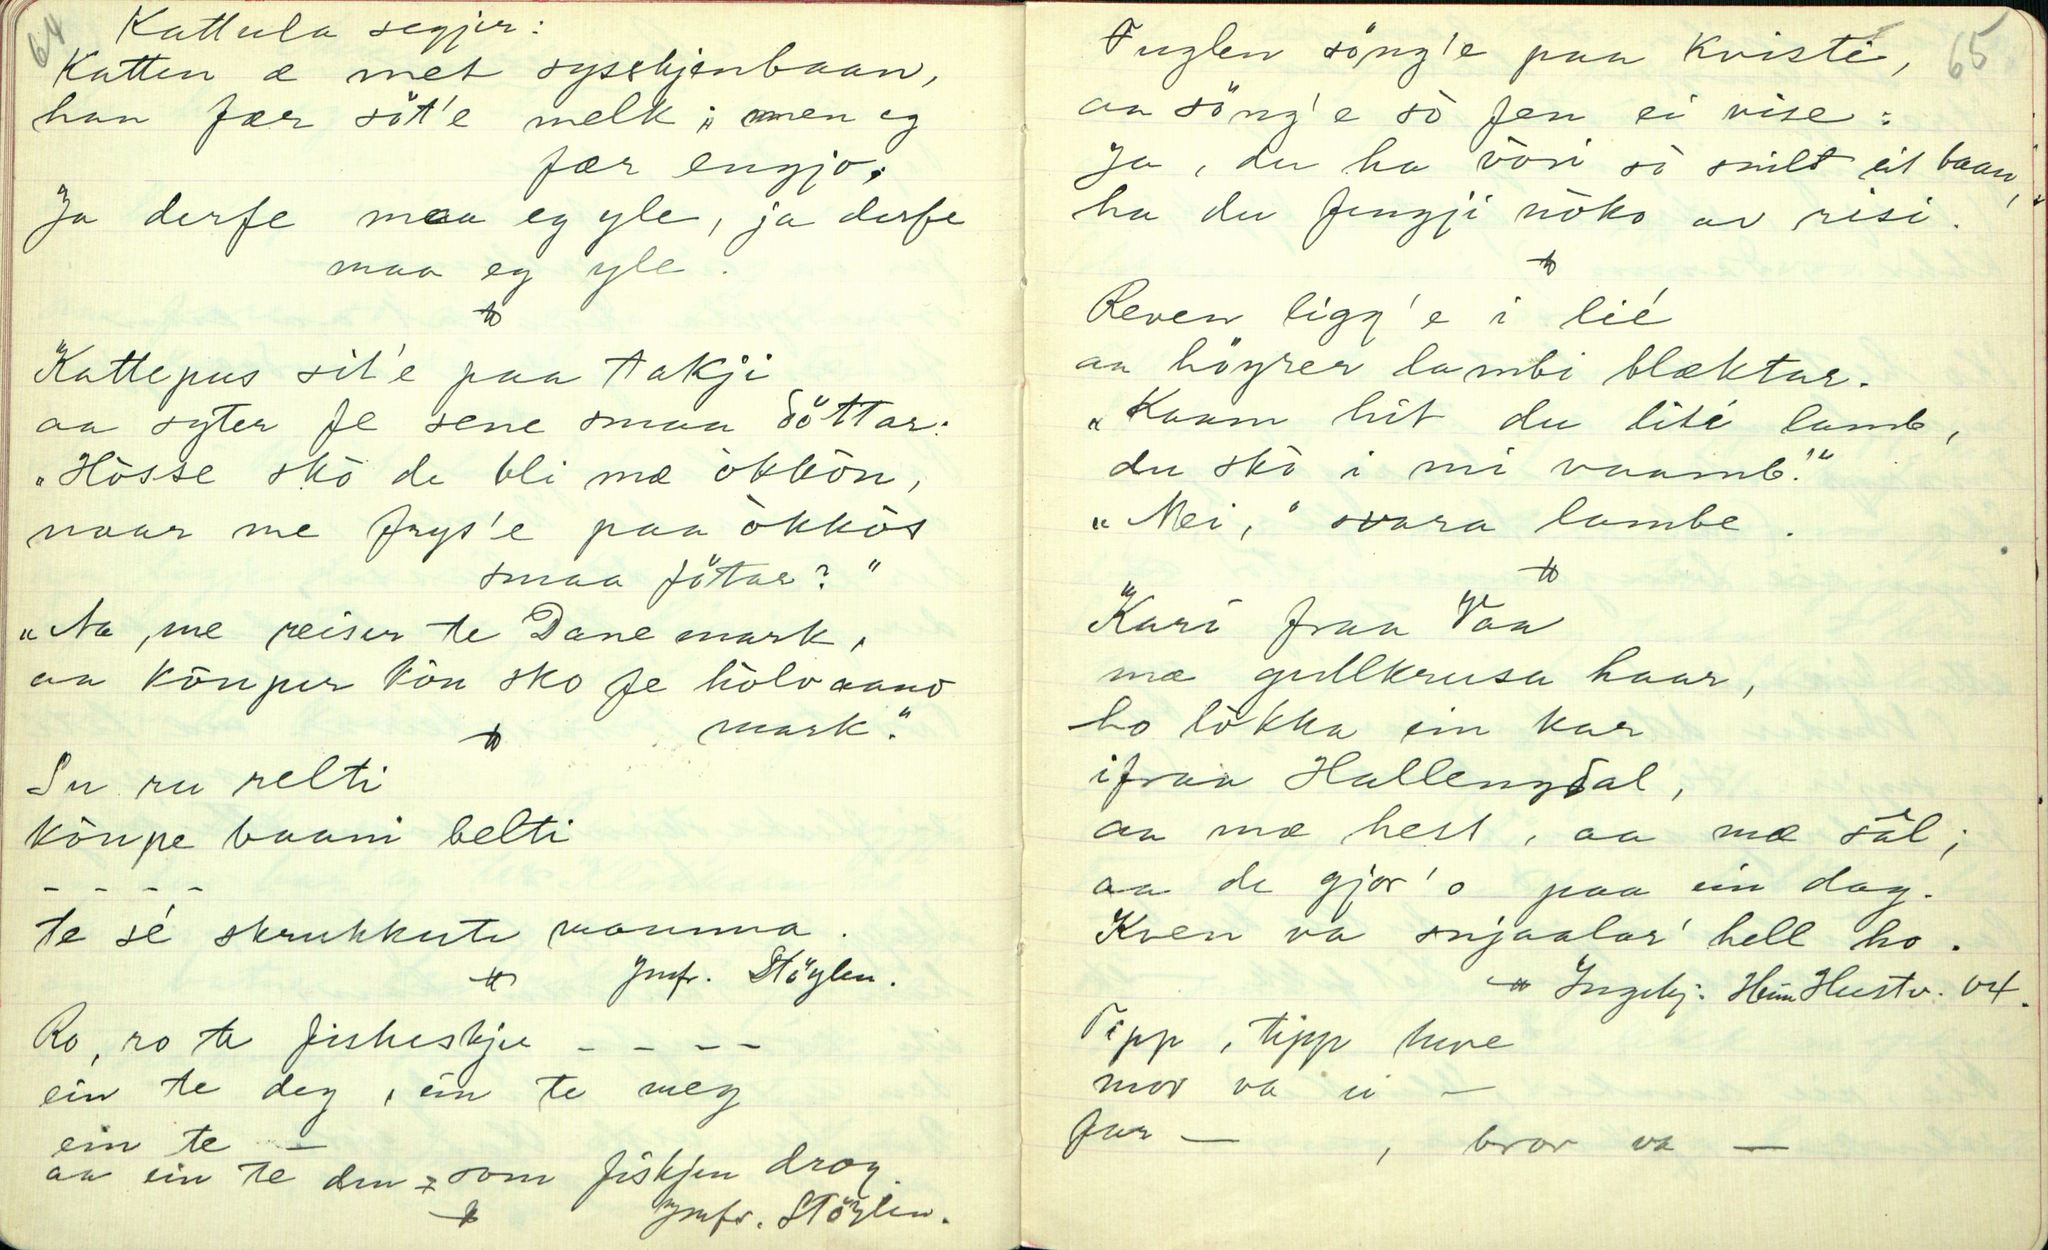 64
Kattula segjer:
Katten æ met syskjenbaan,
han fær söt'e melk; men eg
fær engjo,
Ja derfe maa eg yle, ja derfe
maa eg yle.
Kattepus sit'e paa takji
aa syter fe sene smaa döttar:
"Hòsse skò de bli mæ òkkòn,
naar me frys'e paa òkkòs
smaa föttar?"
"Aa, me reiser te Danemark,
aa kòuper kòn sko fe hòlvaand
mark."
Su ru relti
kòupe baani belti
- - - -
te sé skrukkute mamma.
Jmfr. Stöylen.
Ro, ro te fiskeskjer - - - -
ein te deg, ein te meg
ein te —
aa ein te den, som fiskjen drog.
Jmfr. Stöylen.
65
Fuglen söng'e paa Kvisté,
aa söng'e sò fen ei vise:
Ja, du ha vòri sò snilt eit baan,
ha du fengji nòko av risi.
Reven ligg'e i lié
aa höyrer lambi blæktar.
"Kaam hit du lité lamb,
du skò i mi vaamb!"
"Nei," svara lambe.
Kari fraa Vaa
mæ gullkrusa haar,
ho lòkka ein kar
ifraa Hallengdal,
aa mæ hest, aa mæ sâl;
aa de gjor'o paa ein dag.
Kven va snjaalar' hell ho.
Ingebj. Heim Hustv. 04.
Tipp, tipp huve
mor va ei —
far — , bror va —